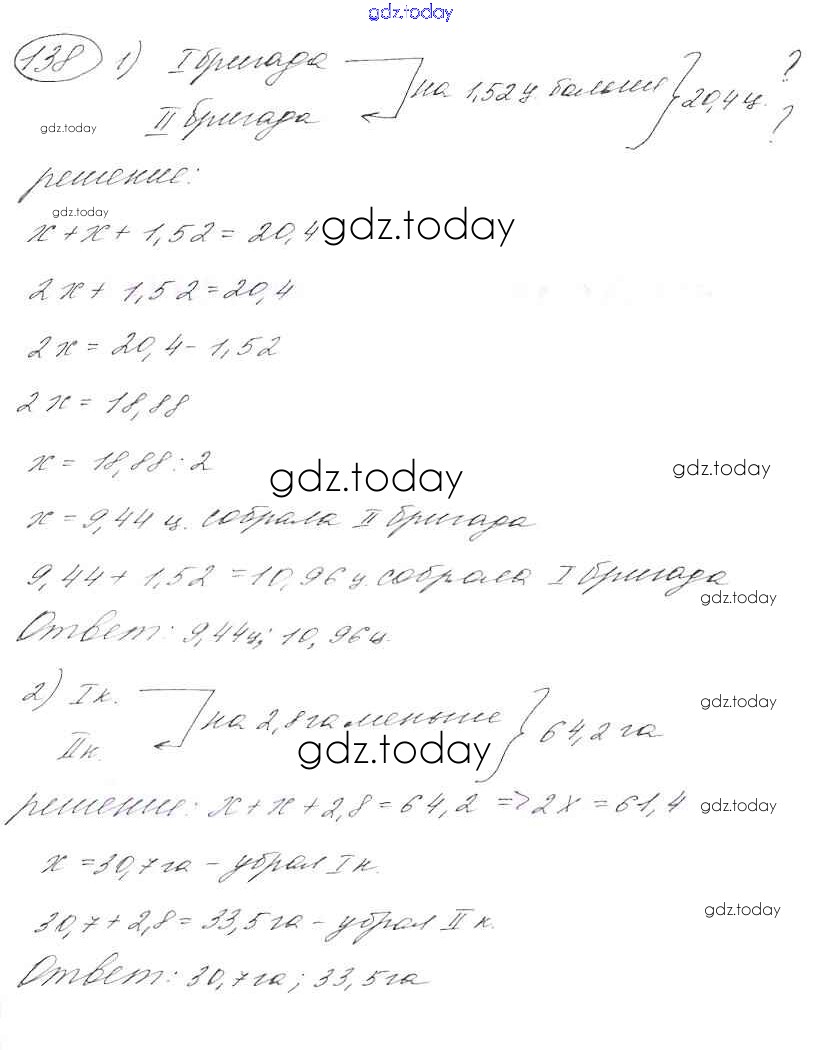 gdz.today
138 1) I бригада на 1,52 ц. больше } 20,4 ц. ?
gdz.today II бригада ?
решение:
gdz.today
x + x + 1,52 = 20,4 gdz.today
2x + 1,52 = 20,4
2x = 20,4 - 1,52
2x = 18,88
x = 18,88 : 2 gdz.today gdz.today
x = 9,44 ц. собрала II бригада
9,44 + 1,52 = 10,96 ц. собрала I бригада
gdz.today
Ответ: 9,44 ц; 10,96 ц.
2) I к. на 2,8 га меньше } 64,2 га gdz.today
II к. gdz.today
решение: x + x + 2,8 = 64,2 => 2x = 61,4 gdz.today
x = 30,7 га - убрал I к.
30,7 + 2,8 = 33,5 га - убрал II к. gdz.today
Ответ: 30,7 га; 33,5 га